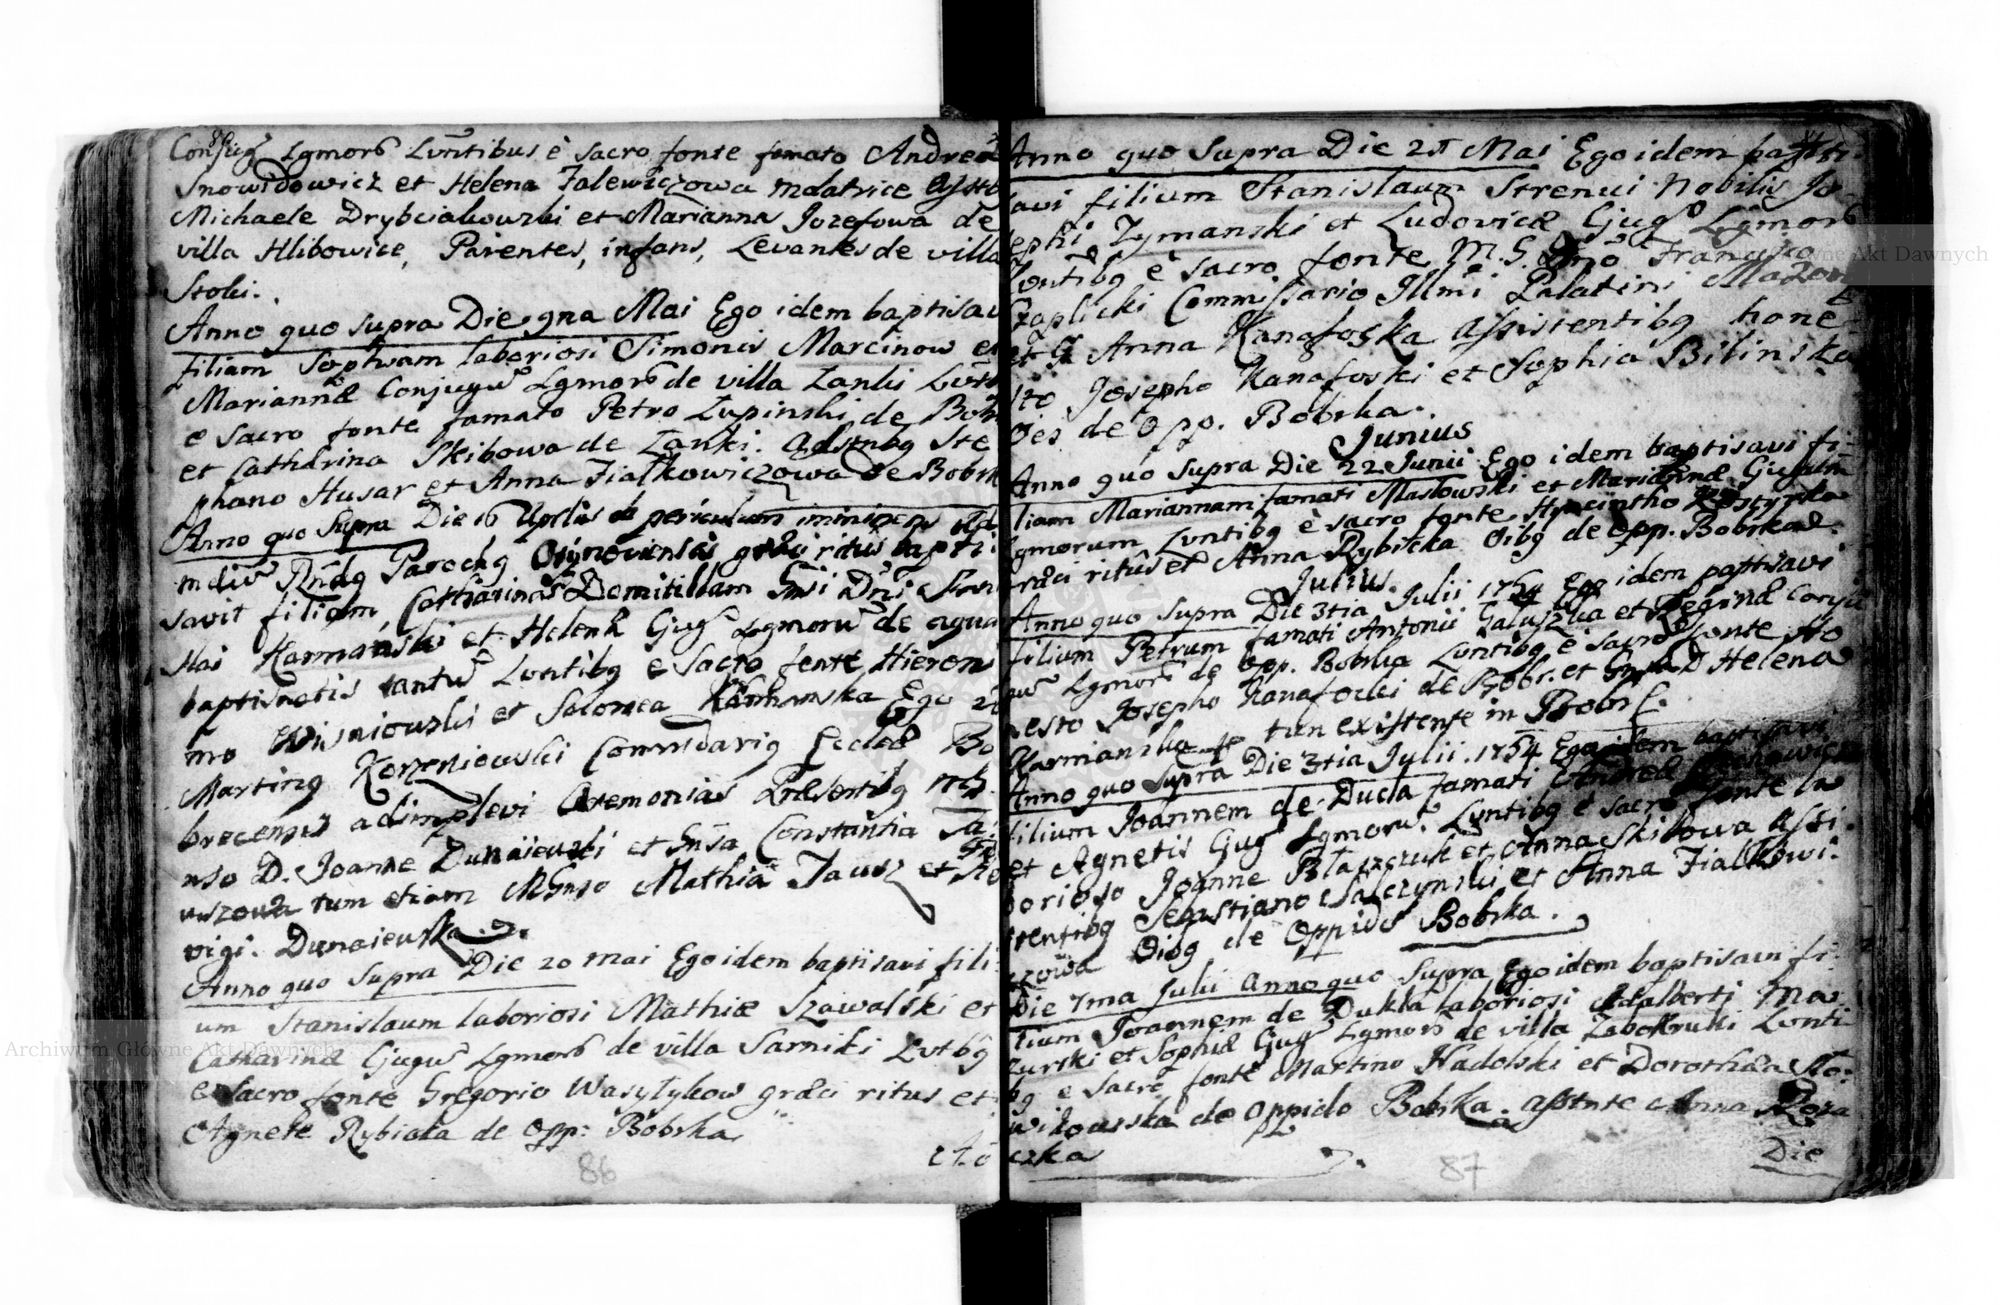 Conjug Lgmorū Lvntibus è sacro fonte famato Andrea
Snowidowicz et Helena Zalewiczowa
Michaele Drybciakowski et Marianna Jozefowa de
villa Hlibowice, Parentes, infans, Levantes de villa
Stoki.
Anno quo supra Die 9na Mai Ego idem baptisavi
filiam Sophiam laboriosi Simonis Marcinow et
Mariannæ Conjugū Lgmorū de villa Lanki
e sacro fonte famato Petro Zupinski de
et Catharina Skibowa de Lanki. Adstnbg Ste
phano Husar et Anna Fialkowiczowa de Bobrk
Anno quo Supra Die 16 Aprlis ob periculum iminens
Rndg Parochg græci ritus bapti
savit filiam, Catharinam Domitillam Gnsi Dni
slai Karmanski et Helenæ Cjugū Lgmorū de aqua
baptismatis tantū Lvntibg e sacro fonte Hieroni
mo Wisniowski et Salomea Karmanska Ego
Marting Korzeniowski Commēdarig Ecclæ Bo
brecensis adimplevi Ceremonias Præsentibg
nso D. Joanne Dunaiewski et Gnsa Constantia
uszowa tum etiam MGnso Mathia Jawsz et
vigi. Dunaiewska.
Anno quo Supra Die 20 mai Ego idem baptisavi fili
um Stanislaum laboriosi Mathiæ Szawalski et
Catharinæ Cjugū Lgmorū de villa Sarniki Lvtbg
e sacro fonte Gregorio Wasylykow græci ritus et
Agnete Rybicka de Opp: Bobrka
86
Anno quo Supra Die 21 Mai Ego idem baptis
avi filium Stanislaum Strenui Nobilis Jo
sephi Zymanski et Ludovicæ Cjugū Lgmorū
Lvntibg è sacro fonte M.G. Dño Francisco
Czaplicki Commissario Illmi Palatini Mazov
et G Anna Kanafoska Assistentibg hone
sto Josepho Kanafoski et Sophia Bilinska
Oēs de Opp. Bobrka.
Junius
Anno quo Supra Die 22 Junii Ego idem baptisavi fi
liam Mariannam famati Maslowski et Mariannæ Cjugum
Lgmorum Lvntibg è sacro fonte Hyacintho
græci ritûs et Anna Rybicka Oibg de Opp. Bobrka
Julius.
Anno quo supra Die 3tia Julii 1754 Ego idem baptisavi
filium Petrum famati Antonii Galuszka et Reginæ Conju
gū Lgmorū de Opp. Bobrka Lvntibg è sacro fonte Ho
nesto Josepho Kanafoski de Bobr. et Gnsa D Helena
Karmanska tun existente in Bobr.
Anno quo Supra Die 3tia Julii. 1754 Ego idem baptisavi
filium Joannem de Ducla famati Andreæ
et Agnetis Cjug Lgmorū. Lvntibg è sacro fonte la
borioso Joanne Blaszczuk et Anna Skibowa Assi
stentibg Sebastiano Salczynski et Anna Fialkowi
czowa Oibg de Oppido Bobrka.
Die 7ma Julii Anno quo Supra Ego idem baptisavi fi
lium Joannem de Dukla laboriosi Adalberti Ma
zurski et Sophiæ Cjug Lgmorū de villa Zabokruki Lvnti
bg e sacro fonte Martino Hadolski et Dorothea
wikowska de Oppido Bobrka. Asstnte Anna
czka
87
Die
Archiwum Główne Akt Dawnych
Archiwum Główne Akt Dawnych